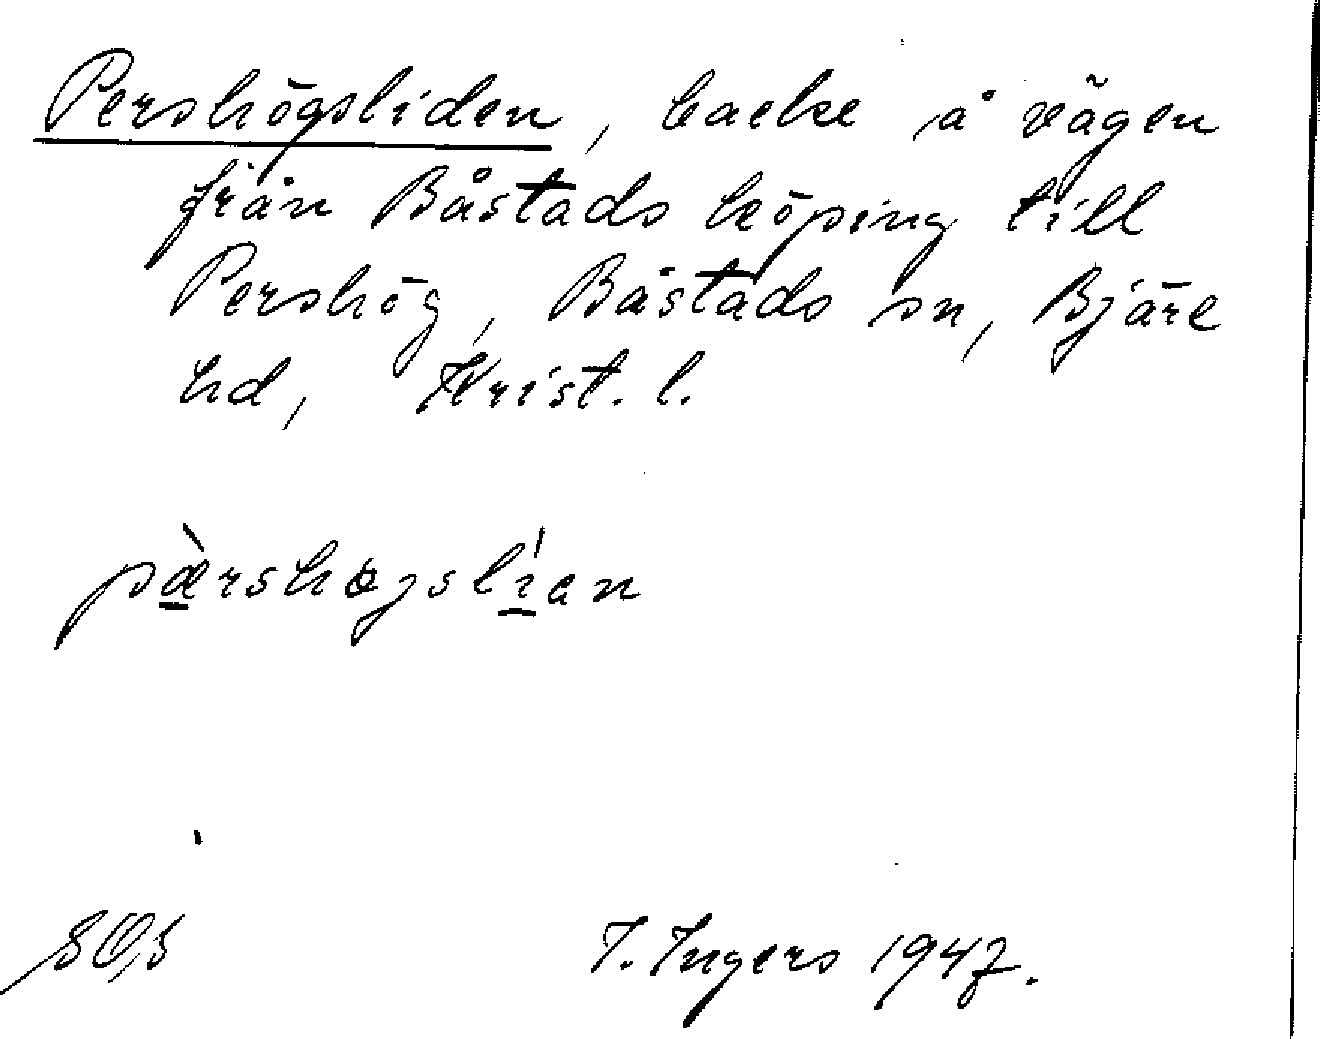 Pershögsliden, backe å vägen
från Båstads köping till
Pershög, Båstads sn, Bjäre
hd, Krist. l.
pæ̀rshøgslían
I. Ingers 1947.